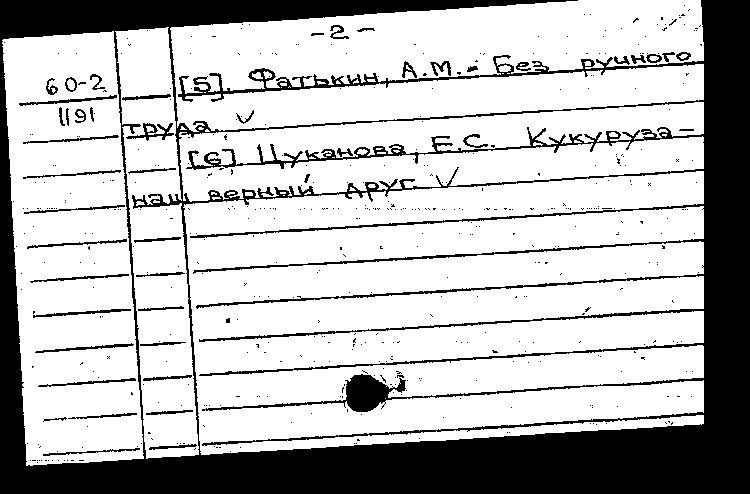 -2-
60-2
1191
[5]. Фатькин, А.М.- Без ручного
труда. ✓
[6]. Цуканова, Е.С. Кукуруза -
наш верный друг. ✓